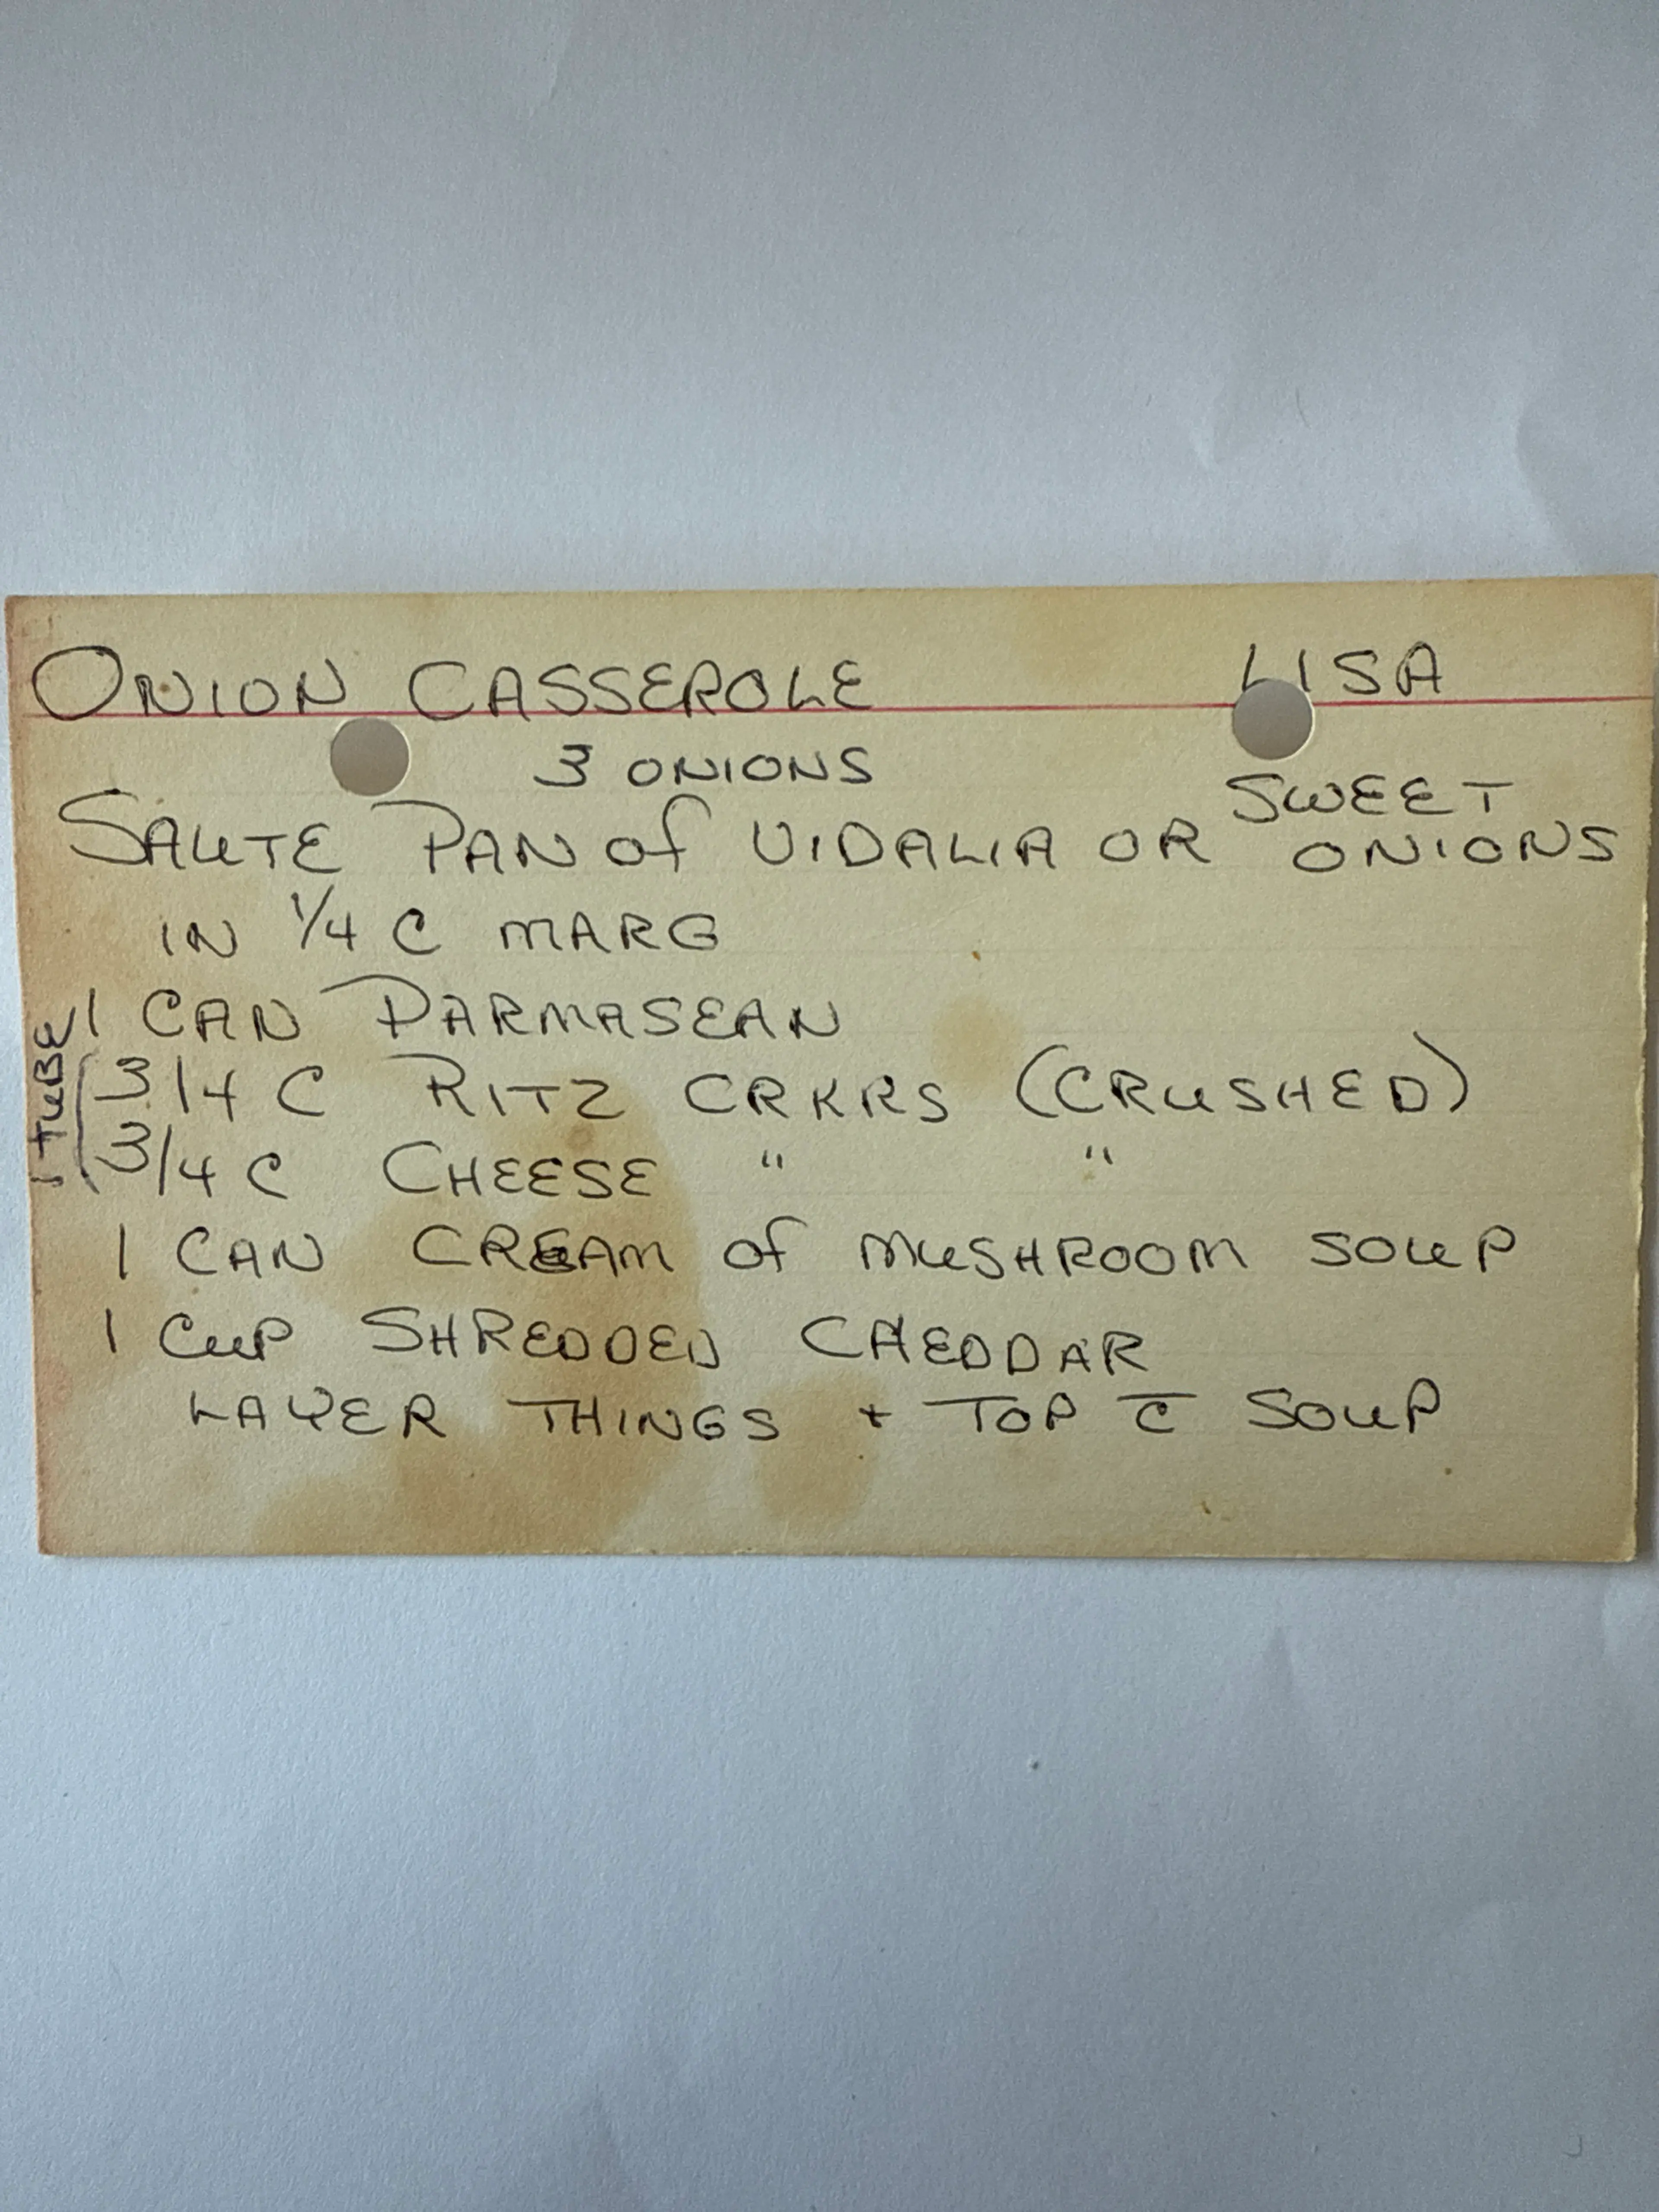 ONION CASSEROLE LISA
3 ONIONS
SAUTE PAN of VIDALIA OR SWEET ONIONS
IN 1/4 C MARG
1 CAN PARMASEAN
1 TUBE
3/4 C RITZ CRKRS (CRUSHED)
3/4 C CHEESE " "
1 CAN CREAM of MUSHROOM SOUP
1 CUP SHREDDED CHEDDAR
LAYER THINGS + TOP c̅ SOUP